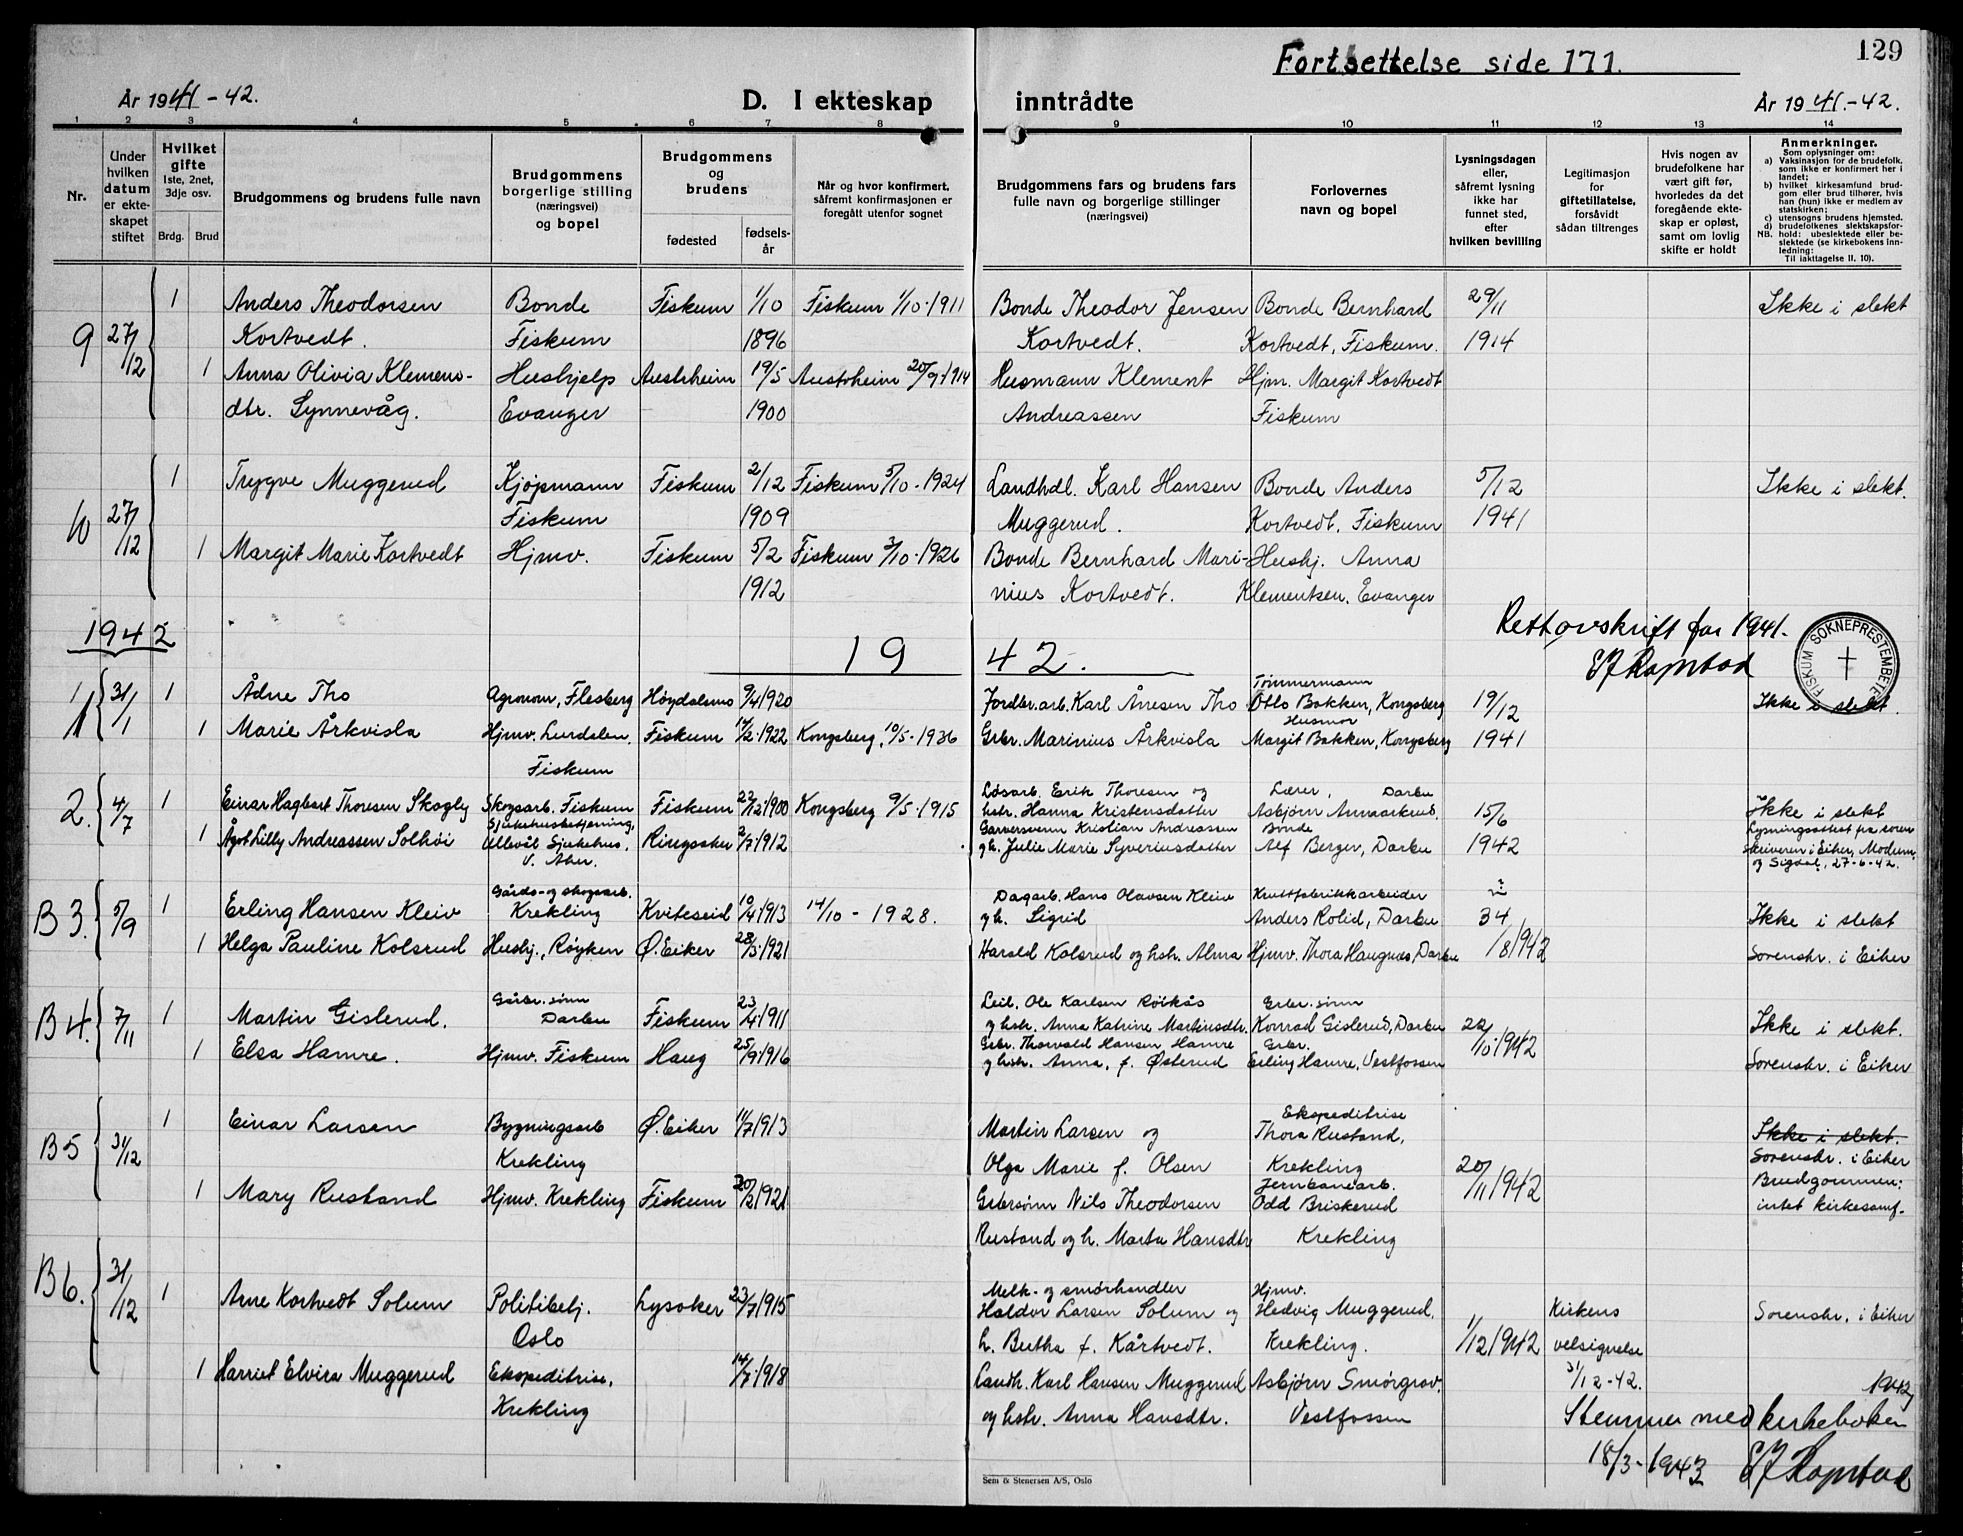 Fortsettelse side 171.
129
År 1941 - 42.
D. I ekteskap inntrådte
År 1941. - 42.
1 2 3 4 5 6 7 8 9 10 11 12 13 14
Nr.
Under hvilken datum er ekteskapet stiftet
Hvilket gifte 1ste, 2net, 3dje osv.
Brdg. Brud
Brudgommens og brudens fulle navn
Brudgommens borgerlige stilling (næringsvei) og bopel
Brudgommens og brudens
fødested
fødselsår
Når og hvor konfirmert, såfremt konfirmasjonen er foregått utenfor sognet
Brudgommens fars og brudens fars fulle navn og borgerlige stillinger (næringsvei)
Forlovernes navn og bopel
Lysningsdagen eller, såfremt lysning ikke har funnet sted, efter hvilken bevilling
Legitimasjon for giftetillatelse, forsåvidt sådan tiltrenges
Hvis nogen av brudefolkene har vært gift før, hvorledes da det foregående ekteskap er opløst, samt om lovlig skifte er holdt
Anmerkninger.
Som oplysninger om:
a) Vaksinasjon for de brudefolk, som ikke er konfirmert her i landet;
b) hvilket kirkesamfund brudgom eller brud tilhører, hvis han (hun) ikke er medlem av statskirken;
c) utensogns brudens hjemsted.
d) brudefolkenes slektskapsforhold: ubeslektede eller beslektede (se kirkebokens innledning:
NB. Til iakttagelse II. 10).
9 27/12 1 Anders Theodorsen Bonde Fiskum 1/10 Fiskum 1/10-1911 Bonde Theodor Jensen Bonde Bernhard 29/11 Ikke i slekt
Kortvedt. Fiskum 1896 Kortvedt. Kortvedt, Fiskum. 1914
1 Anna Olivia Klemens- Hushjelp Austrheim 19/5 Austrheim 20/9-1914 Husmann Klement Hjm. Margit Kortvedt
dtr. Synnevåg. Evanger 1900 Andreassen Fiskum
10 27/12 1 Trygve Muggerud Kjøpmann Fiskum 2/12 Fiskum 5/10-1924 Landhdl. Karl Hansen Bonde Anders 5/12 Ikke i slekt.
Fiskum 1909 Muggerud. Kortvedt, Fiskum 1941
1 Margit Marie Kortvedt Hjmv. Fiskum 5/2 Fiskum 3/10-1926 Bonde Bernhard Mari- Hushj. Anna
1912 nius Kortvedt. Klementsen, Evanger
1942
19 42.
Rett avskrift for 1941.
FISKUM SOKNEPRESTEMBETE
1 31/1 1 Ådne Tho Agronom, Flesberg Høydalsmo 9/4 1920 Jordbr.arb. Karl Ånesen Tho Tømmermann Otto Bakken, Kongsberg 19/12 Ikke i slekt.
1 Marie Årkvisla Hjmv. Lurdalen, Fiskum 14/2-1922 Kongsberg, 10/5-1936 Grbr. Marinius Årkvisla Husmor Margit Bakken, Kongsberg 1941
Fiskum
2. 4/7 1 Einar Hagbart Thoresen Skogly Skogsarb. Fiskum Fiskum 22/12 1900 Kongsberg 9/5-1915 Løsarb. Erik Thoresen og Lærer, Darbu 15/6 Ikke i slekt
hstr. Hanna Kristensdatter Asbjørn Annarkrud,
1 Ågot Lilly Andreassen Solhøi Sjukehusbetjening, Ullevål Sjukehus, V. Aker. Ringsaker 2/7 1912 Garversvenn Kristian Andreassen Bonde 1942 Lysningsattest fra soren
g h. Julie Marie Syveriusdatter Alf Berger, Darbu skriveren i Eiker, Modum, og Sigdal, 27-6-42.
B 3. 5/9 1 Erling Hansen Kleiv Gårds- og skogsarb. Krekling Kviteseid 10/4 1913 14/10 - 1928. Dagarb. Hans Olavsen Kleiv Kruttfabrikkarbeider
g h. Sigrid Anders Rolid, Darbu 34 Ikke i slekt
1 Helga Pauline Kolsrud Hushj., Røyken Ø. Eiker 28/5 1921 Harald Kolsrud og hstr. Alma Hjmv. Thora Haugnæs, Darbu /8 1942 Sorenskr. i Eiker
B 4. 7/11 1 Martin Gislerud. Gårbr. sønn Darbu Fiskum 23/4 1911 Leil. Ole Karlsen Röikås Grbr. sønn
og hstr. Anna Katrine Martinsdtr. Konrad Gislerud, Darbu 22/10 1942 Ikke i slekt.
1 Elsa Hamre. Hjmv. Fiskum Haug 25/9 1916 Grbr. Thorvald Hansen Hamre Grbr.
g hstr. Anna, f. Østerud Erling Hamre, Vestfossen Sorenskr. i Eiker
B 5 31/12 1 Einar Larsen Bygningsarb Krekling Ø. Eiker 11/7 1913 Martin Larsen og Ekspeditrise Thora Rustand, Ikke i slekt.
Olga Marie f. Olsen Krekling 20/11 1942 Sorenskr. i Eiker
1 Mary Rustand Hjmv. Krekling Fiskum 20/2 1921 Gårbrsønn Nils Theodorsen Jernbanearb. Odd Briskerud Brudgommen: intet kirkesamf.
Rustand og h. Marta Hansdtr Krekling
B 6. 31/12 1 Arne Kortvedt Solum Politibetj. Oslo Lysaker 23/7 1915 Melk- og smørhandler Hjmv.
Haldor Larsen Solum og Hedvig Muggerud, Kirkens Sorenskr. i Eiker
h. Bertha f. Kårtvedt. Krekling. 1/12 1942 velsignelse
1 Harriet Elvira Muggerud Ekspeditrise, 14/7 1918 Landh. Karl Hansen Muggerud Asbjørn Smørgrav, 31/12-42.
Krekling og hstr. Anna Hansdtr. Vestfossen
Stemmer med kirkeboken 1942
18/3-1943
Sem & Stenersen A/S, Oslo